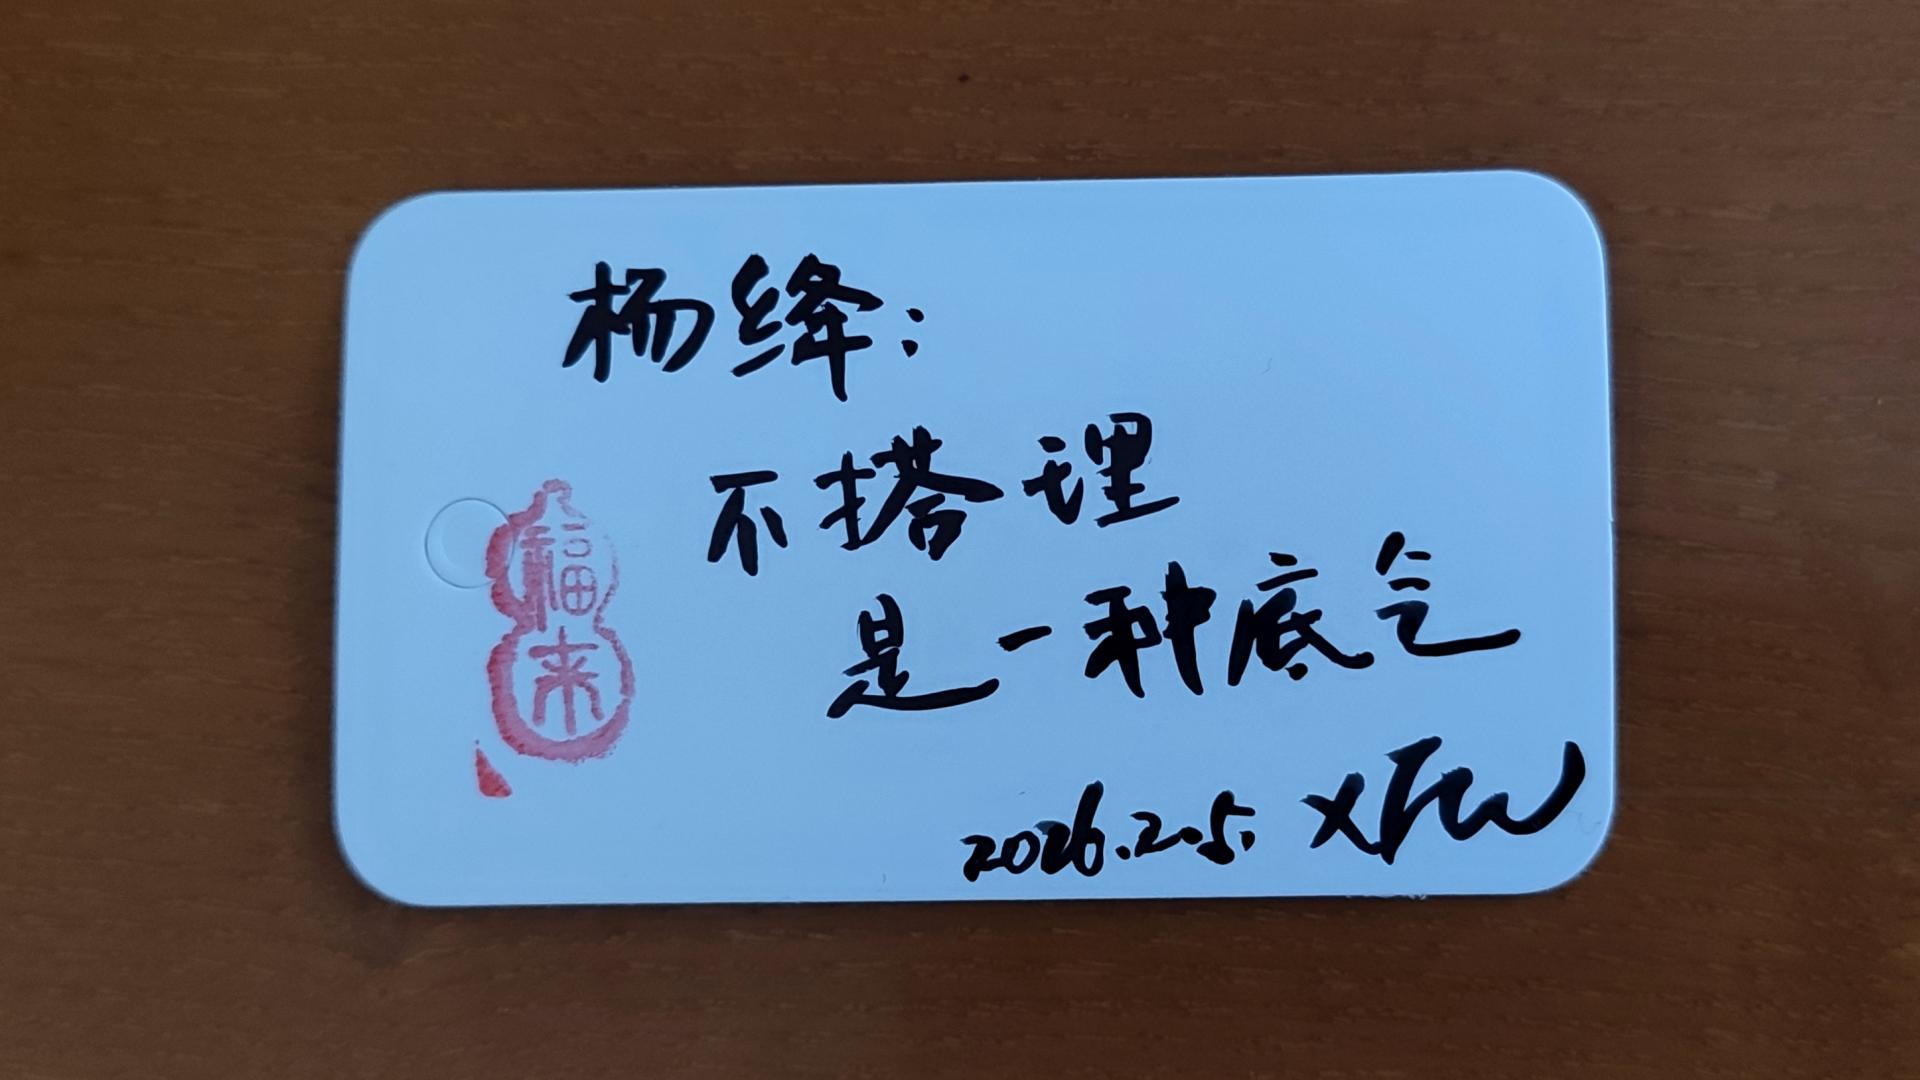 杨绛:
不搭理
是一种底气
2026.2.5.
福来